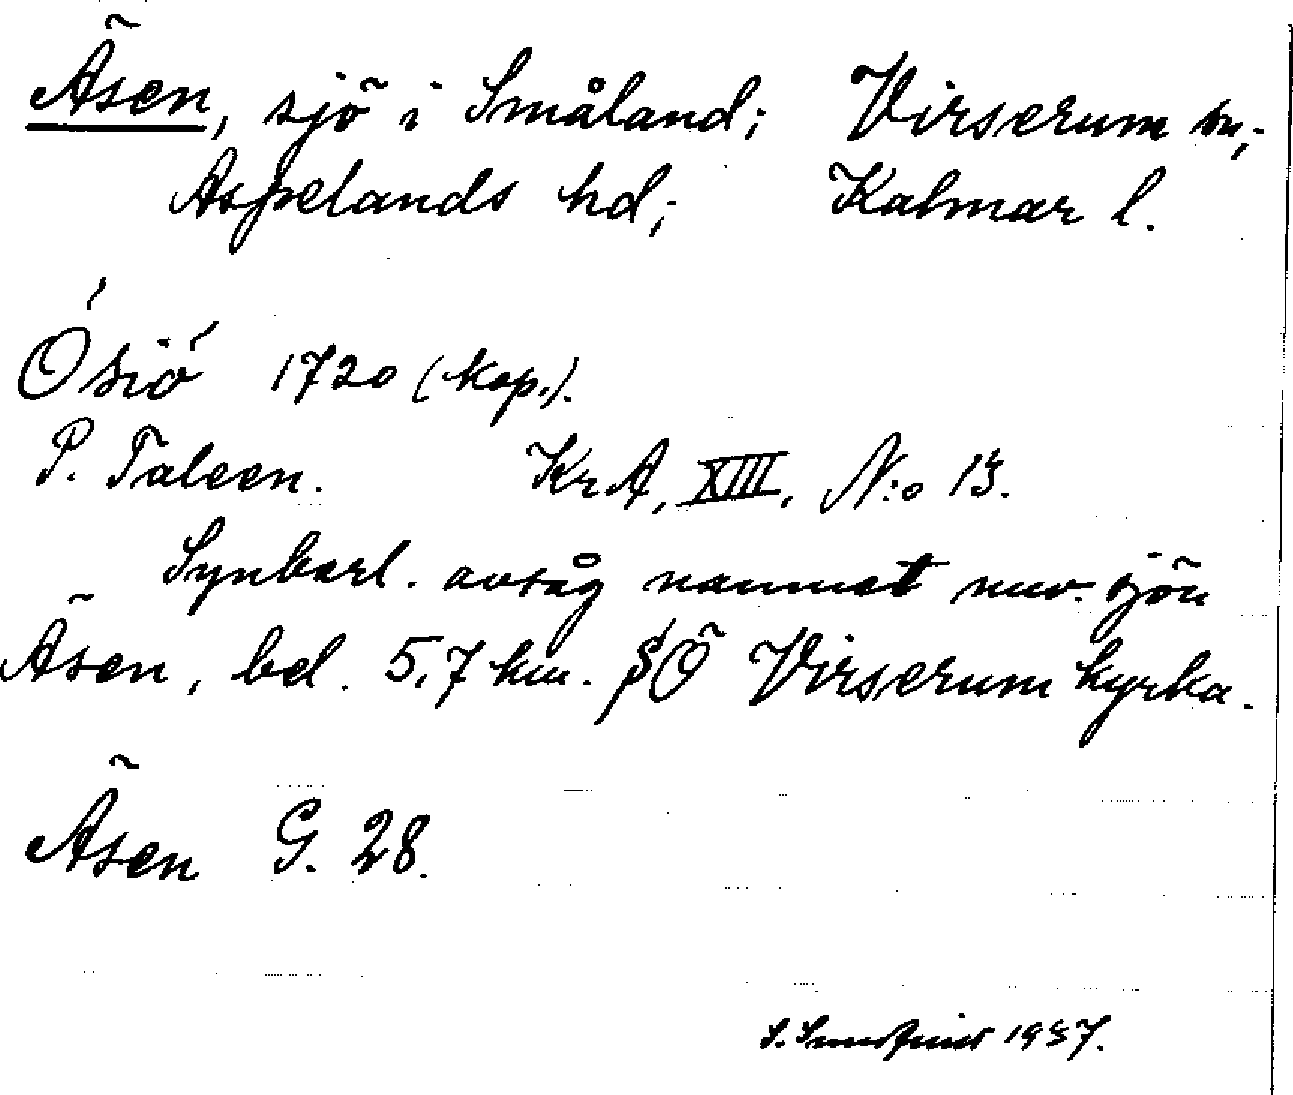 Äsen, sjö i Småland; Virserum sn,
Aspelands hd; Kalmar l.
Ósió 1720 (kop.).
P. Taleen. KrA, XIII, N:o 13.
Synbarl. avsåg namnet nuv. sjön
Äsen, bel. 5,7 km. SÖ Virserum kyrka.
Äsen G. 28.
S. 1937.